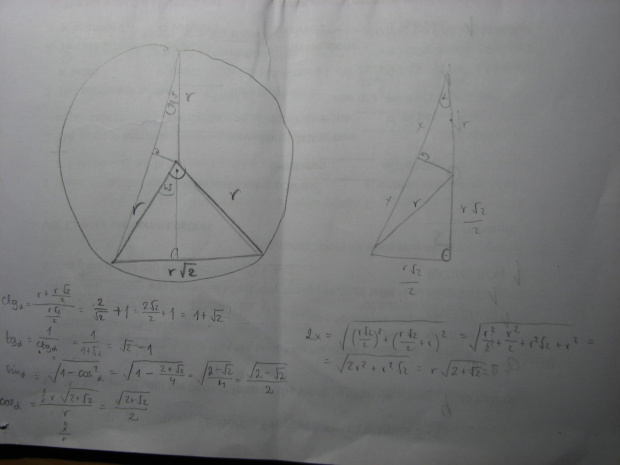 r
r
r
45
r√2
x
x
r
r
r√2/2
r√2/2
ctgα = (r + r√2/2)/(r√2/2) = 2/√2 + 1 = 2√2/2 + 1 = 1 + √2
tgα = 1/ctgα = 1/(1+√2) = √2 - 1
sinα = √(1 - cos²α) = √(1 - (2+√2)/4) = √((2-√2)/4) = √(2-√2)/2
cosα = (½ r √(2+√2))/r = √(2+√2)/2
2x = √((r√2/2)² + (r√2/2 + r)²) = √(r²/2 + r²/2 + r²√2 + r²) =
= √(2r² + r²√2) = r√(2+√2)